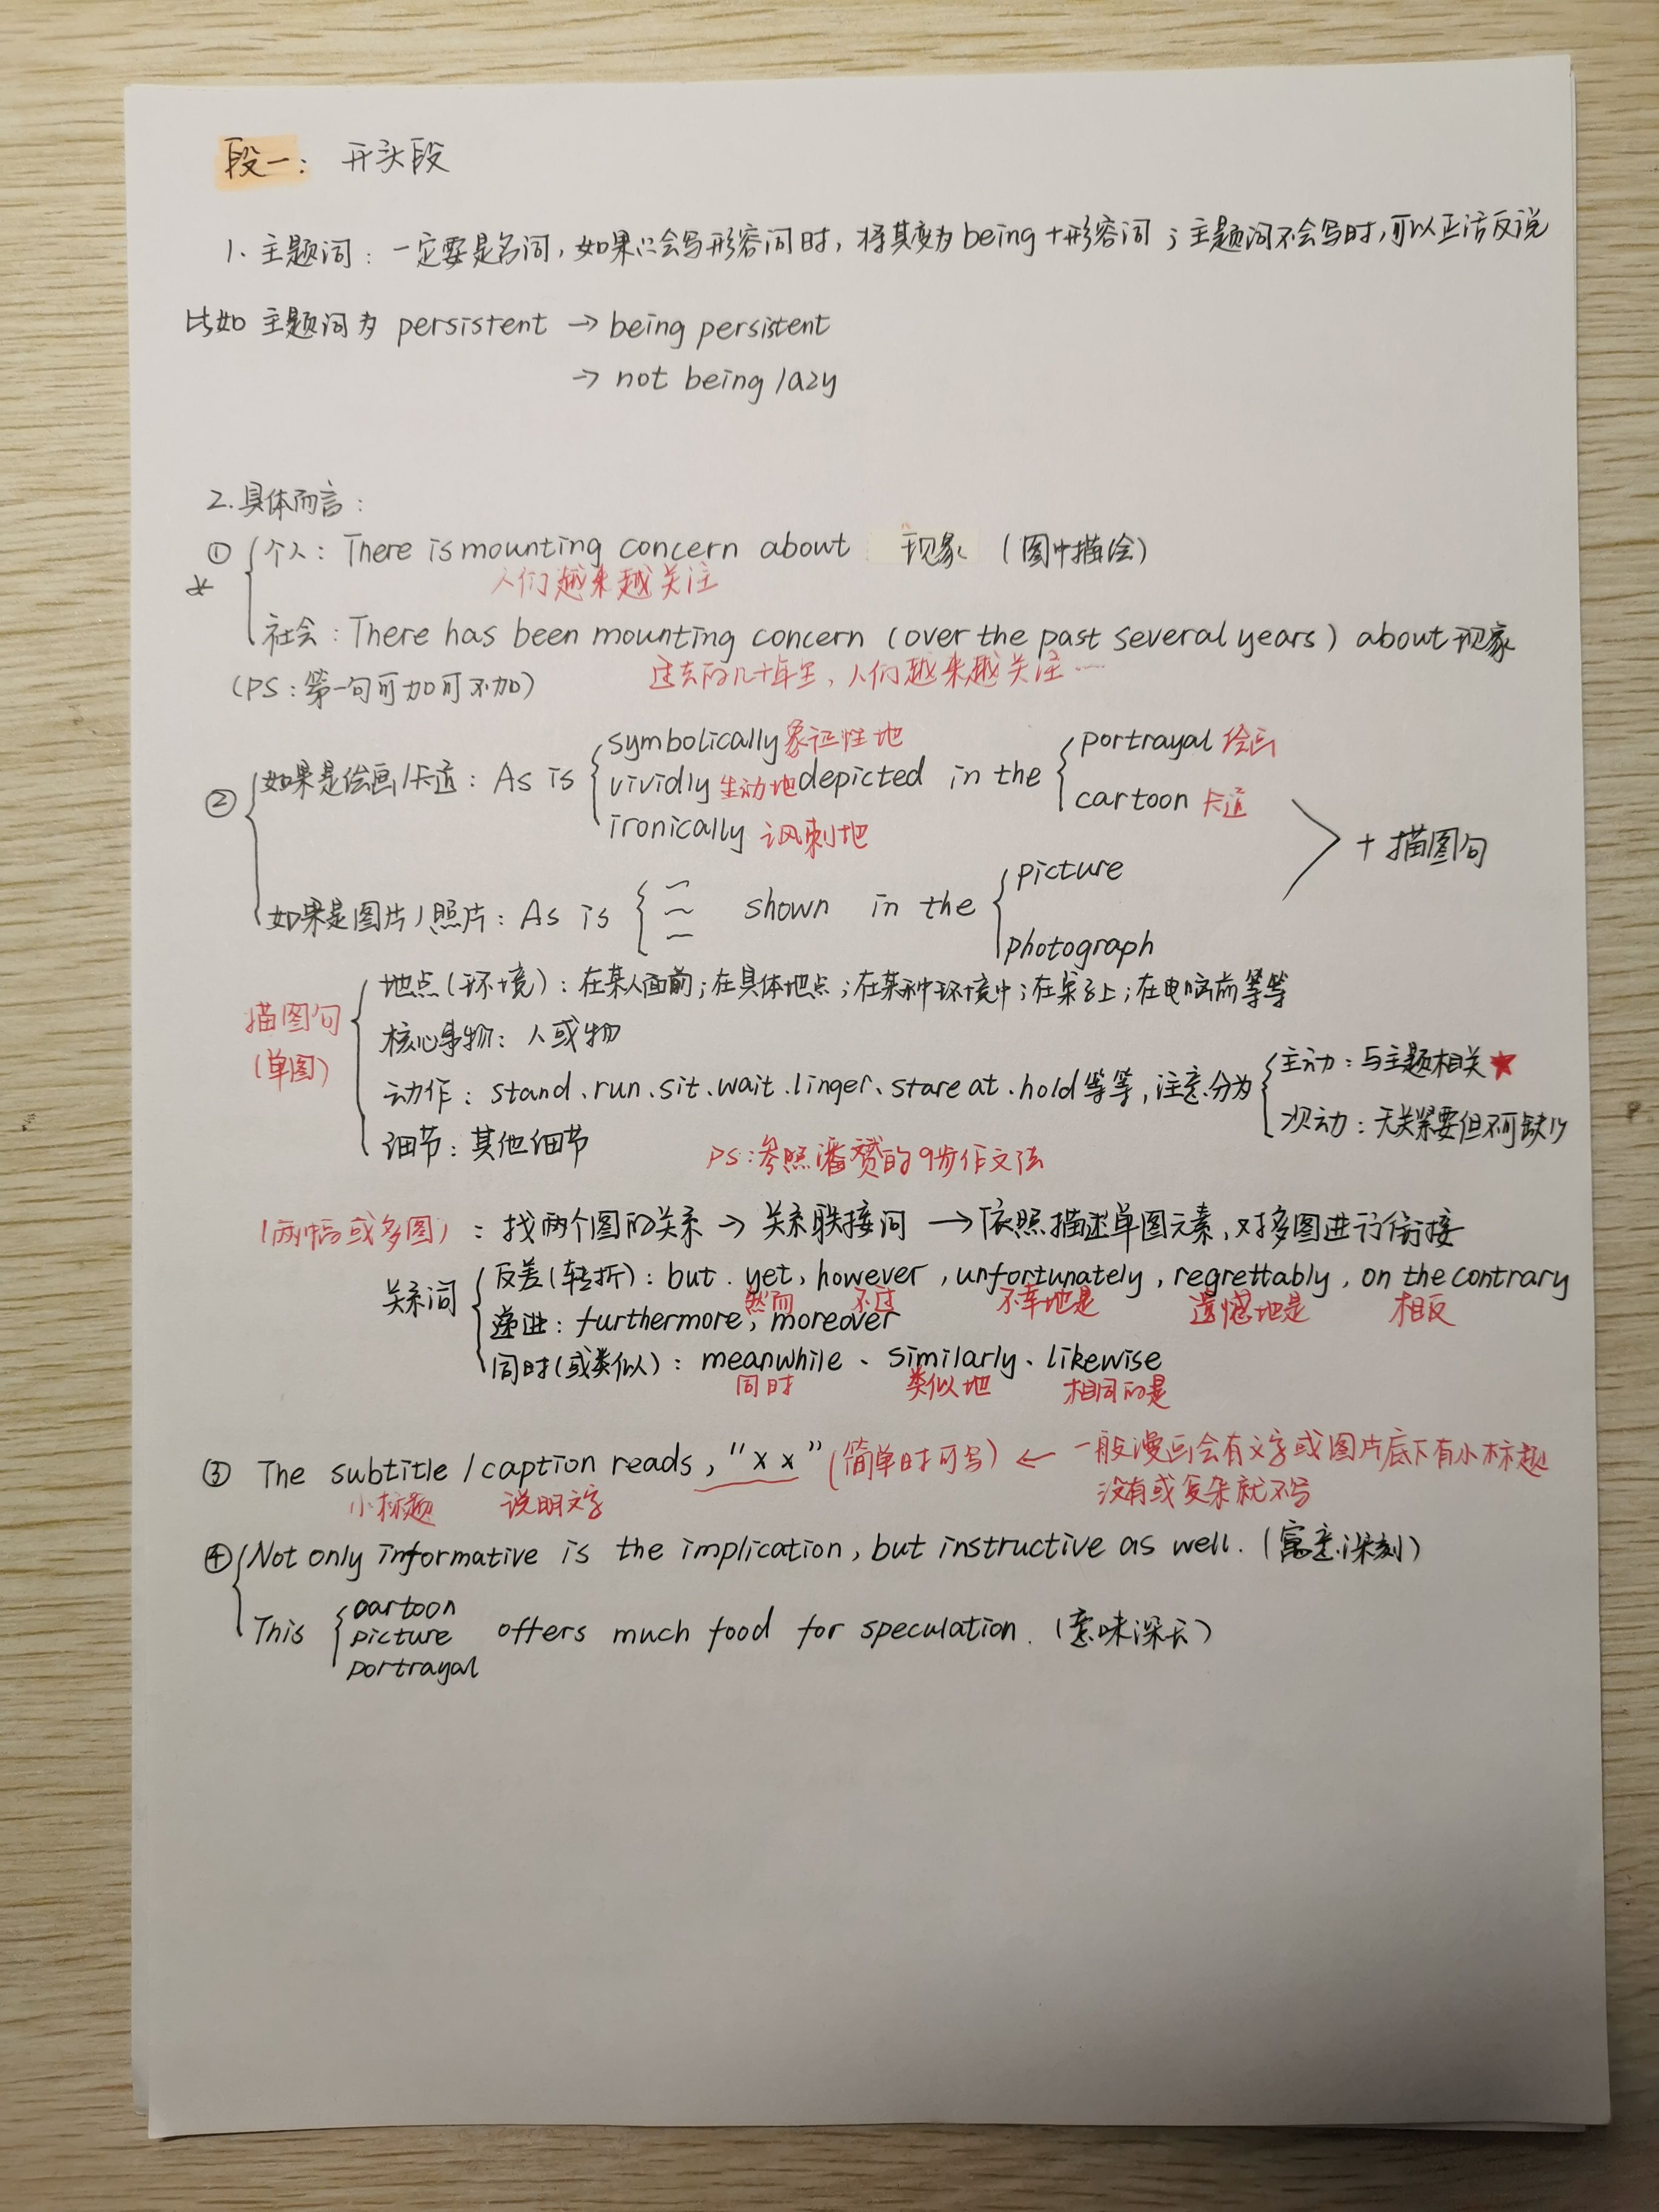 段一： 开头段
1. 主题词：一定要是名词，如果只会写形容词时，将其变为being+形容词；主题词不会写时，可以正话反说
比如 主题词为 persistent → being persistent
→ not being lazy
2.具体而言：
① 个人：There is mounting concern about 现象（图中描绘）
人们越来越关注
社会：There has been mounting concern (over the past several years) about 现象
过去的几十年里，人们越来越关注…
（PS：第一句可加可不加）
② 如果是绘画/卡通：As is symbolically 象征性地
vividly 生动地 depicted in the portrayal 绘画
ironically 讽刺地 cartoon 卡通
+ 描图句
如果是图片/照片：As is shown in the picture
photograph
描图句（单图）
地点（环境）：在某人面前；在具体地点；在某种环境中；在桌子上；在电脑前等等
核心事物：人或物
动作：stand、run、sit、wait、linger、stare at、hold等等，注意分为 主动：与主题相关★
次动：无关紧要但不可缺少
细节：其他细节
PS：参照潘赟的9步作文法
（两幅或多图）：找两个图的关系→关系联接词→依照描述单图元素，对多图进行衔接
关系词 反差（转折）：but、yet，however，unfortunately，regrettably，on the contrary
然而 不过 不幸地是 遗憾地是 相反
递进：furthermore，moreover
同时（或类似）：meanwhile、similarly、likewise
同时 类似地 相同的是
③ The subtitle/caption reads，"x x"（简单时可写）← 一般漫画会有文字或图片底下有小标题
小标题 说明文字 没有或复杂就不写
④ Not only informative is the implication, but instructive as well.（寓意深刻）
This cartoon
picture offers much food for speculation.（意味深长）
portrayal